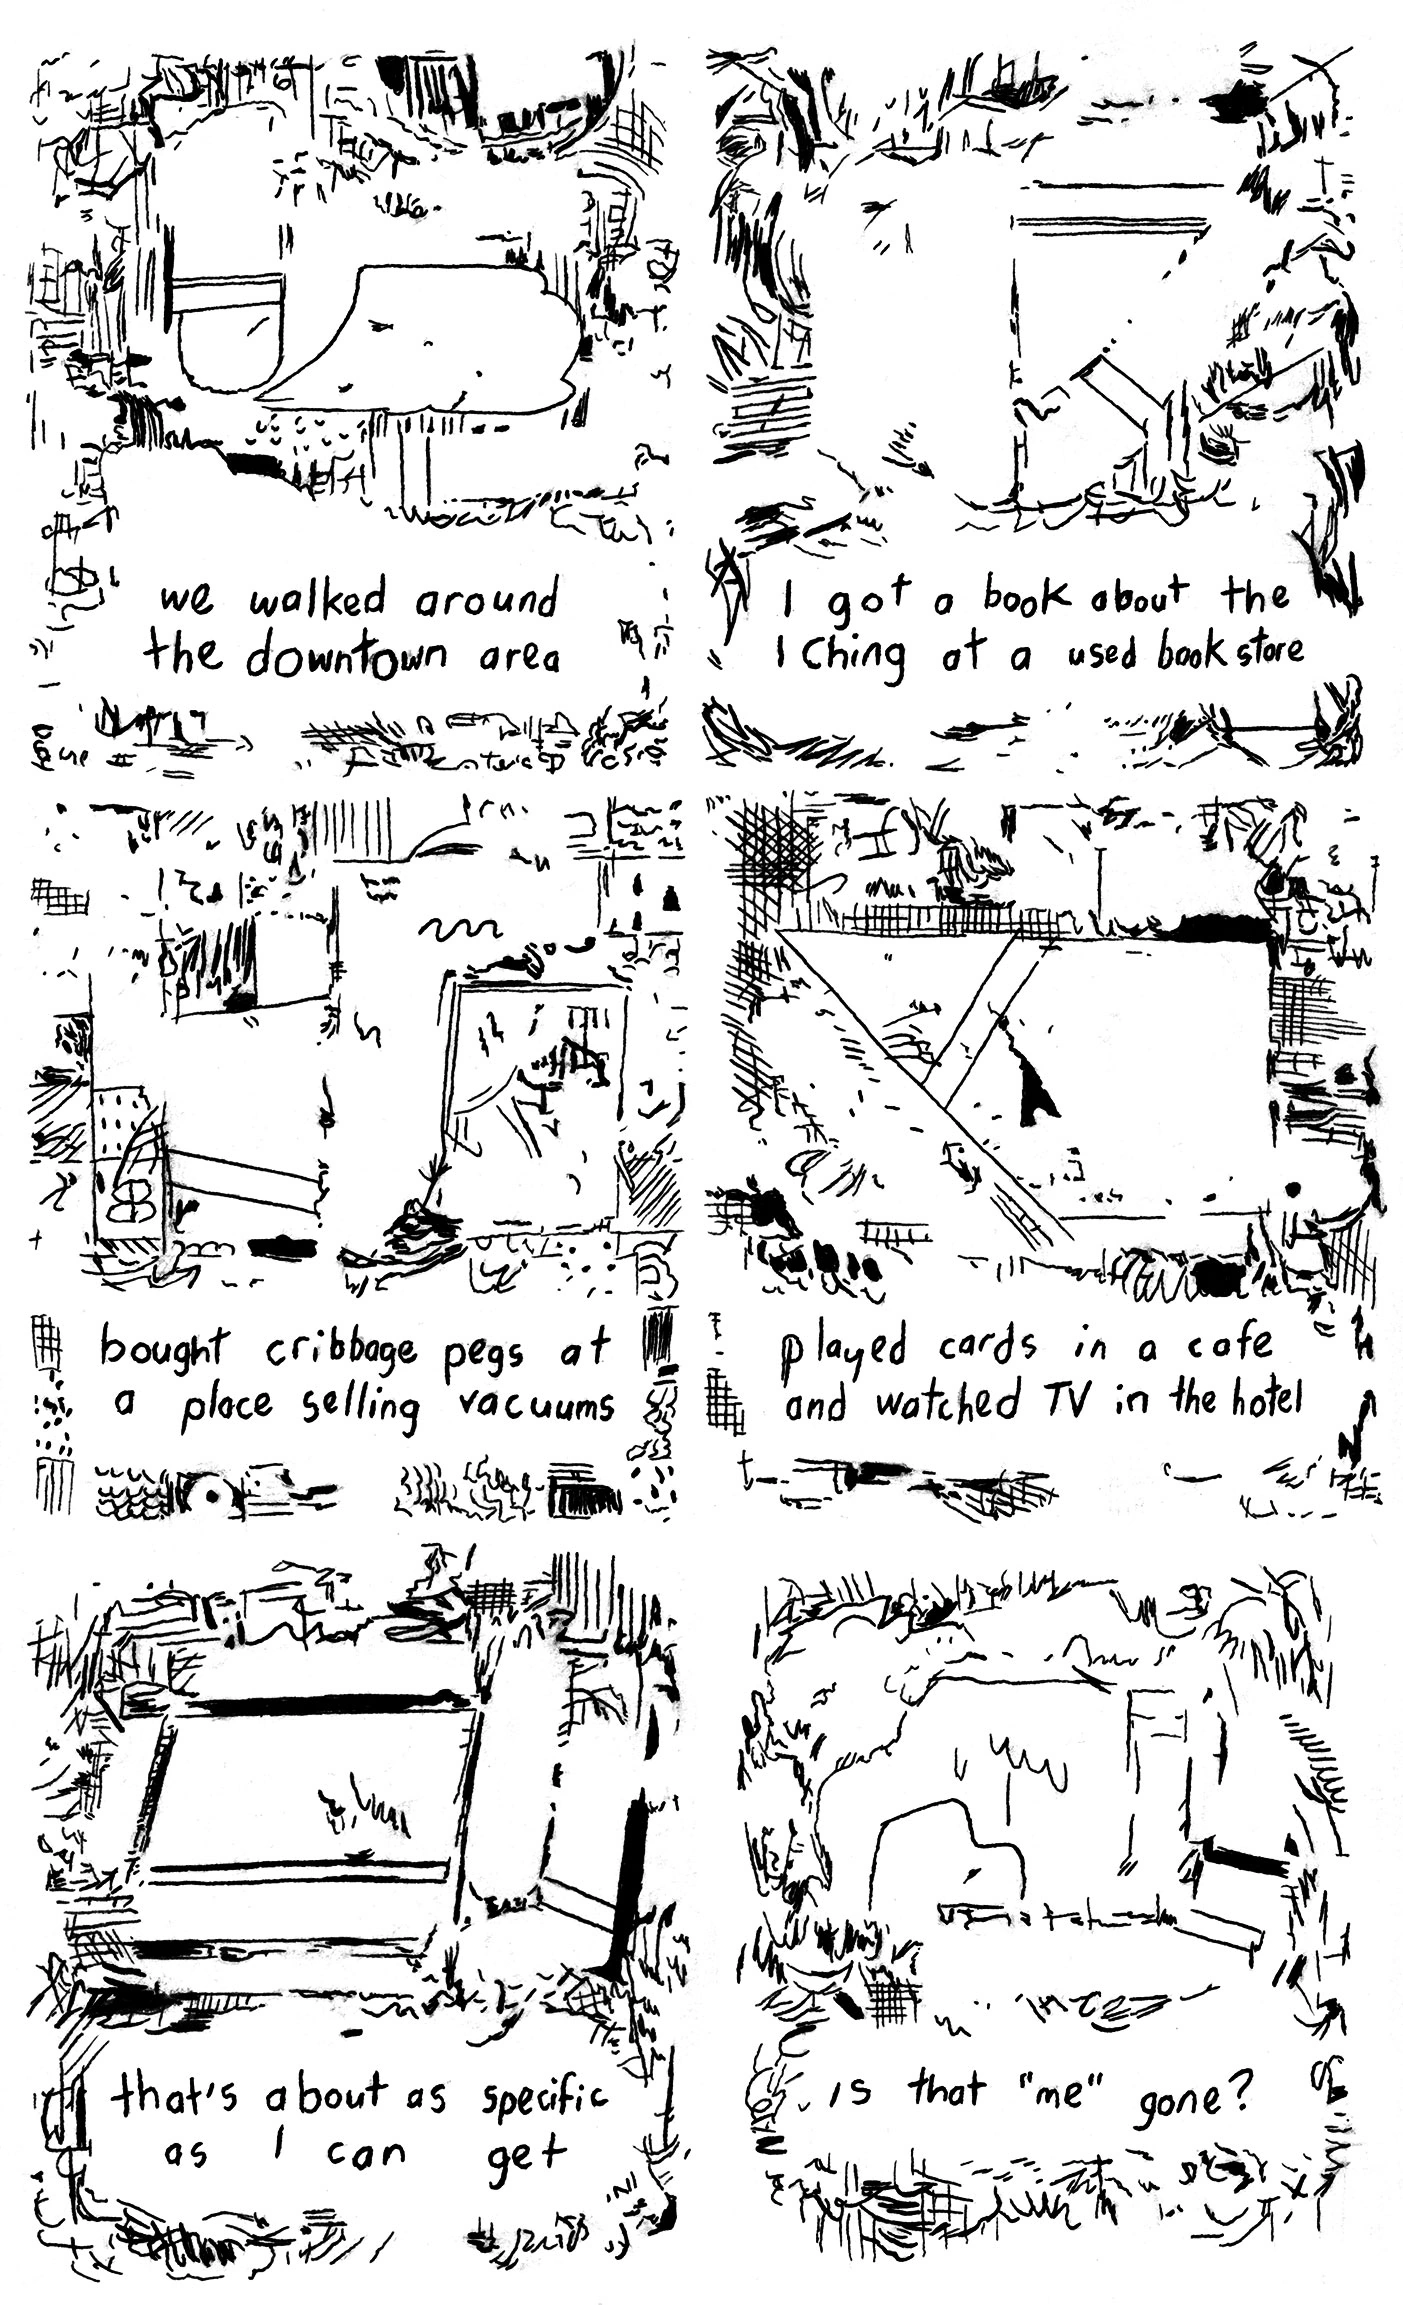 we walked around
the downtown area
I got a book about the
I Ching at a used book store
bought cribbage pegs at
a place selling vacuums
played cards in a cafe
and watched TV in the hotel
that's about as specific
as I can get
is that "me" gone?